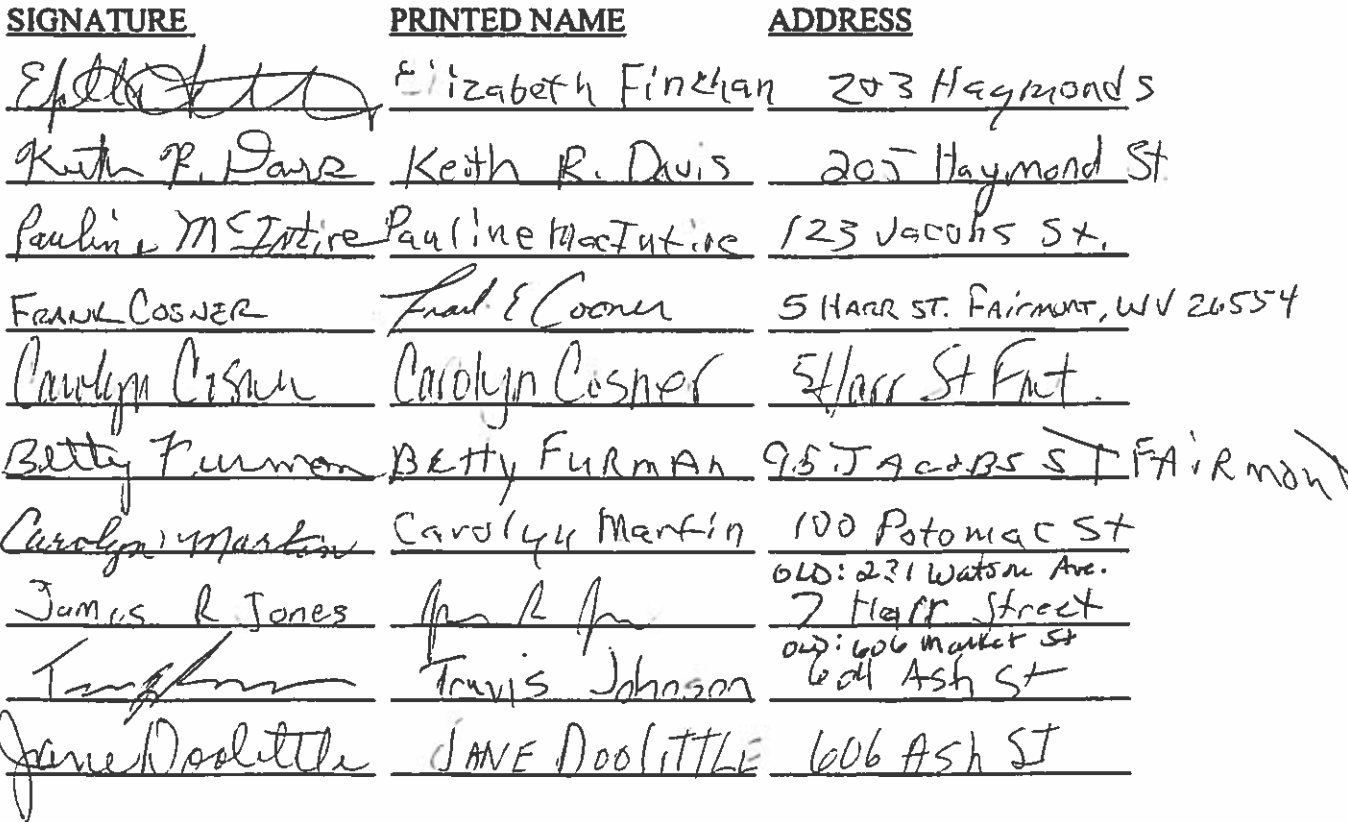 SIGNATURE PRINTED NAME ADDRESS
Elizabeth Finchan 203 Haymond S
Keith R. Davis Keith R. Davis 205 Haymond St
Pauline McIntire Pauline MacIntire 123 Jacobs St.
FRANK COSNER Frank E Cosner 5 HARR ST. FAIRMONT, WV 26554
Carolyn Cosner Carolyn Cosner 5 Harr St Fmt.
Betty Furman BETTY FURMAN 95 JACOBS ST FAIRmont
Carolyn Martin Carolyn Martin 100 Potomac St
OLD: 231 Watson Ave.
James R Jones 7 Harr Street
OLD: 606 Market St
Travis Johnson 604 Ash St
Jane Doolittle JANE DOOLITTLE 606 Ash ST